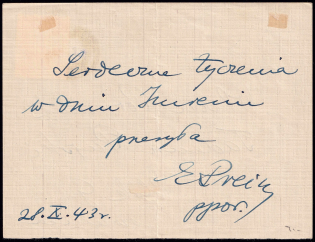 Serdeczne życzenia
w dniu Imienin
przesyła
E Prein
ppor.
28.IX.43r.